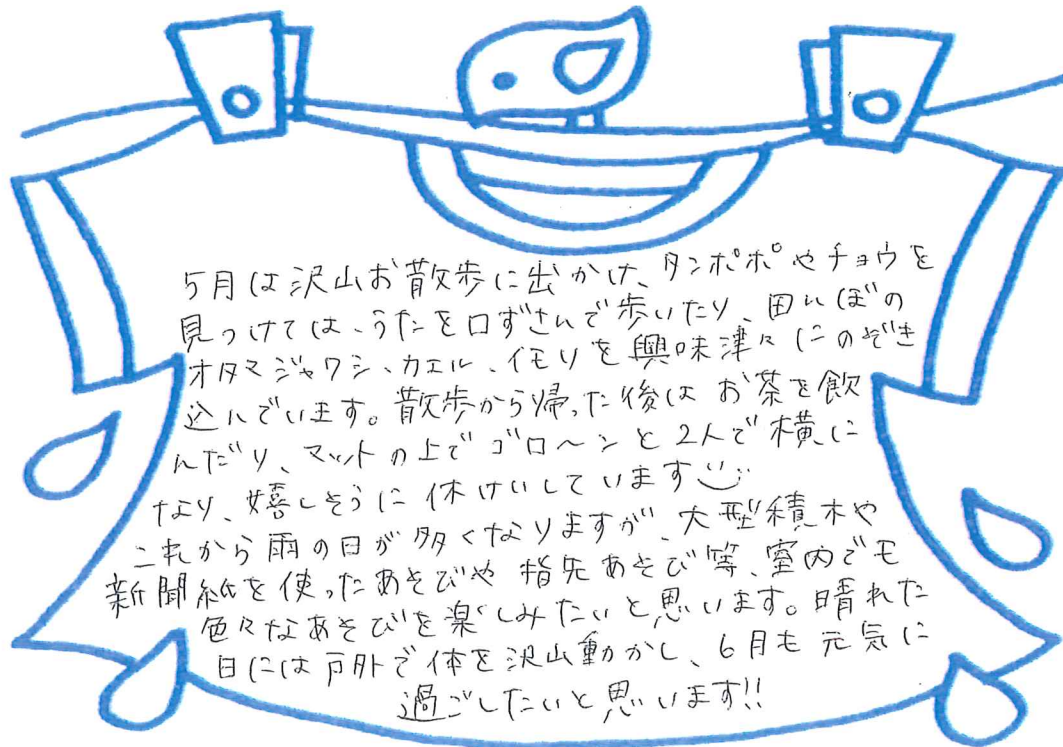 5月は沢山お散歩に出かけ、タンポポやチョウを
見つけては、うたを口ずさんで歩いたり、田んぼの
オタマジャクシ、カエル、イモリを興味津々にのぞき
込んでいます。散歩から帰った後はお茶を飲
んだり、マットの上でゴロ〜ンと2人で横に
なり、嬉しそうに休けいしています
これから雨の日が多くなりますが、大型積木や
新聞紙を使ったあそびや指先あそび等、室内でも
色々なあそびを楽しみたいと思います。晴れた
日には戸外で体を沢山動かし、6月も元気に
過ごしたいと思います!!